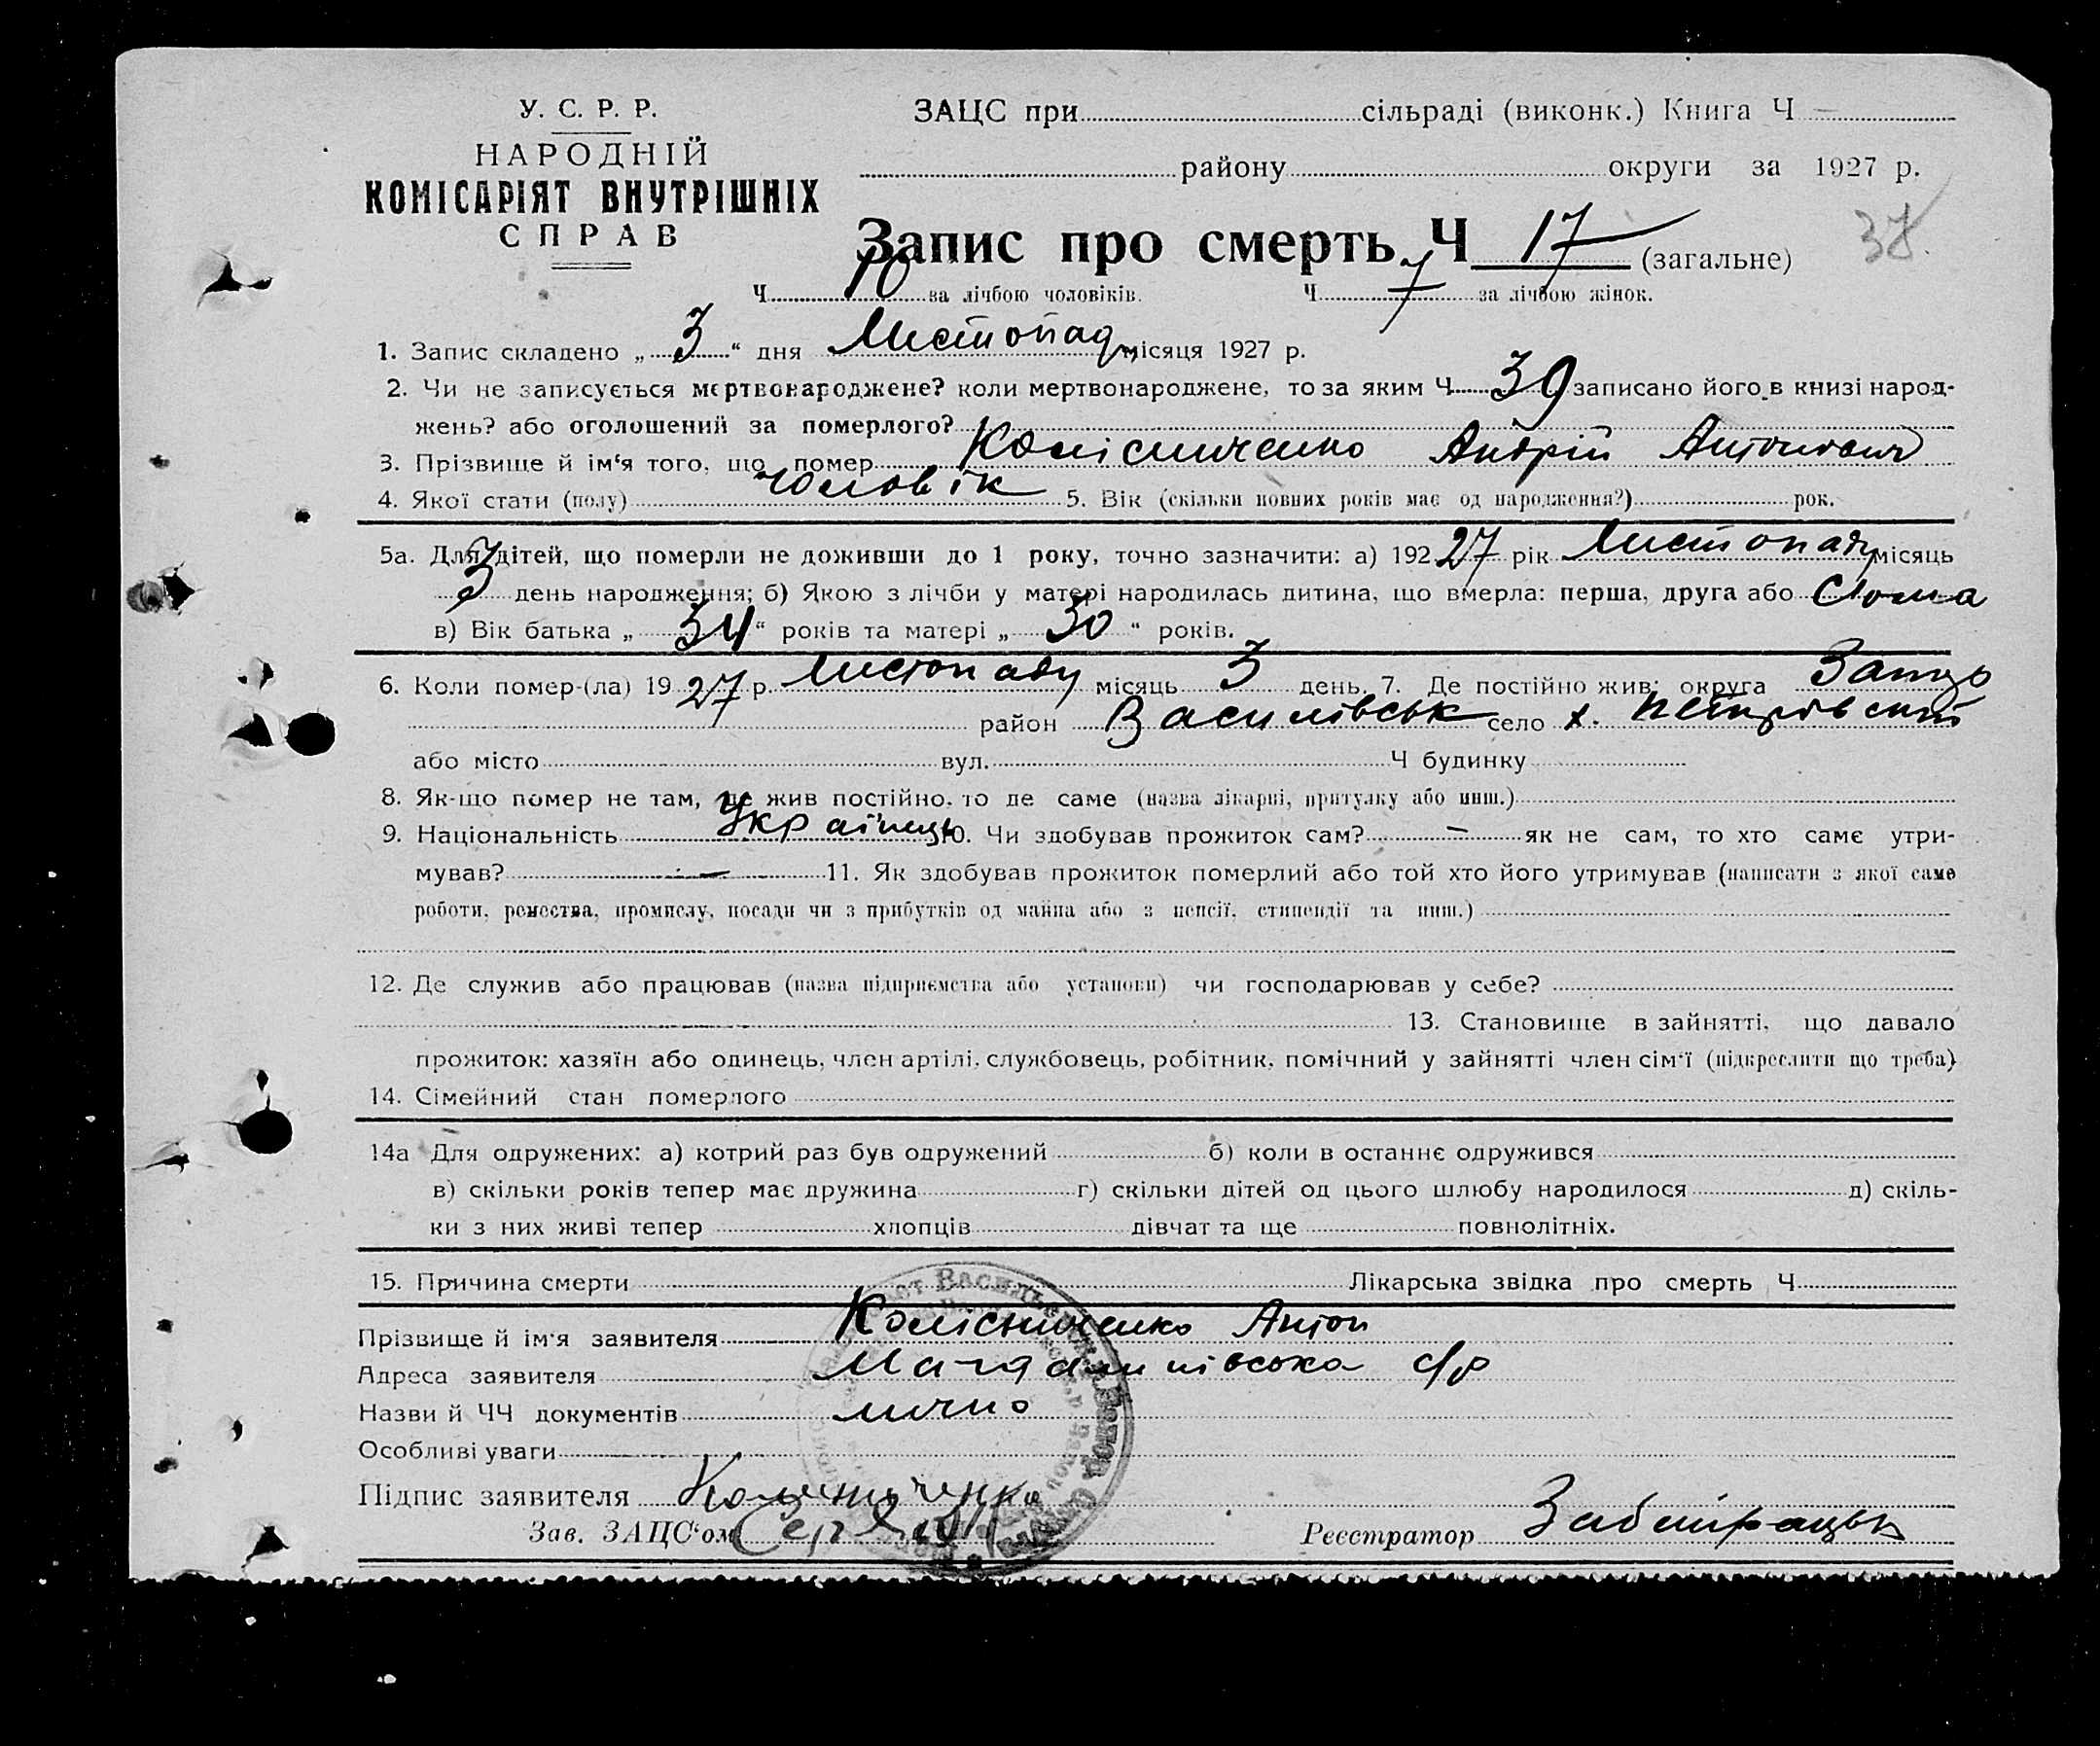 У. С. Р. Р.
НАРОДНІЙ
КОМІСАРІЯТ ВНУТРІШНІХ
СПРАВ
ЗАЦС при сільраді (виконк.) Книга Ч —
району округи за 1927 р.
Запис про смерть Ч 17 (загальне)
38.
Ч 10 за лічбою чоловіків. Ч 7 за лічбою жінок.
1. Запис складено „ 3 “ дня Листопад місяця 1927 р.
2. Чи не записується мертвонароджене? коли мертвонароджене, то за яким Ч 39 записано його в книзі народ-
жень? або оголошений за померлого?
3. Прізвище й ім‘я того, що помер Колісниченко Андрій Антонович
4. Якої стати (полу) чоловік 5. Вік (скільки повних років має од народження?) рок.
5а. Для дітей, що померли не доживши до 1 року, точно зазначити: а) 192 27 рік Листопаду місяць
3 день народження; б) Якою з лічби у матері народилась дитина, що вмерла: перша, друга або сьома
в) Вік батька „ 34 “ років та матері „ 30 “ років.
6. Коли помер-(ла) 19 27 р. Листопаду місяць 3 день. 7. Де постійно жив: округа Запор
район Василівськ село х. Петровський
або місто вул. Ч будинку
8. Як-що помер не там, де жив постійно, то де саме (назва лікарні, притулку або инш.)
9. Національність Українець 10. Чи здобував прожиток сам? — як не сам, то хто саме утри-
мував? — 11. Як здобував прожиток померлий або той хто його утримував (написати з якої саме
роботи, ремества, промислу, посади чи з прибутків од майна або з пенсії, стипендії та инш.)
12. Де служив або працював (назва підприємства або установи) чи господарював у себе?
13. Становище в зайнятті, що давало
прожиток: хазяїн або одинець, член артілі, службовець, робітник, помічний у зайнятті член сім‘ї (підкреслити що треба)
14. Сімейний стан померлого
14а Для одружених: а) котрий раз був одружений б) коли в останнє одружився
в) скільки років тепер має дружина г) скільки дітей од цього шлюбу народилося д) скіль-
ки з них живі тепер хлопців дівчат та ще повнолітніх.
15. Причина смерти Лікарська звідка про смерть Ч
Прізвище й ім‘я заявителя Колісниченко Антон
Адреса заявителя с/р
Назви й ЧЧ документів лично
Особливі уваги
Підпис заявителя Колисниченко
Зав. ЗАЦС‘ом
Реєстратор